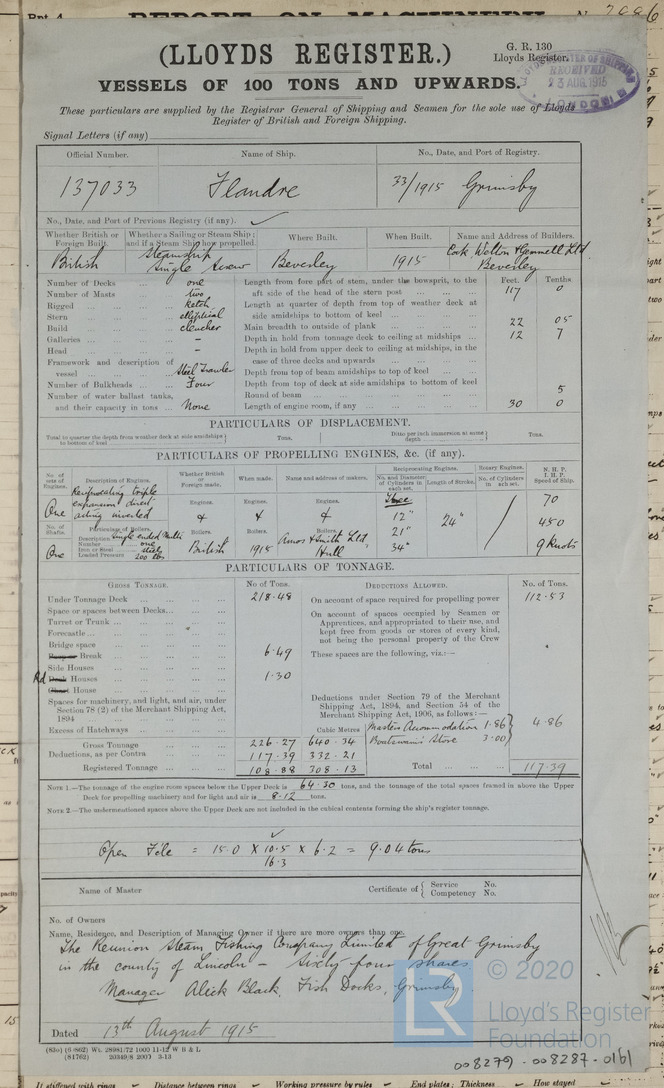 Rpt. 4.
REPORT ON MACHINERY
(LLOYDS REGISTER.)
G. R. 130
Lloyds Register.
VESSELS OF 100 TONS AND UPWARDS.
LLOYDS REGISTER OF SHIPPING
RECEIVED
23 AUG 1915
LONDON
These particulars are supplied by the Registrar General of Shipping and Seamen for the sole use of Lloyds
Register of British and Foreign Shipping.
Signal Letters (if any)
Official Number. Name of Ship. No., Date, and Port of Registry.
137033 Flandre 33/1915 Grimsby
No., Date, and Port of Previous Registry (if any).
Whether British or Foreign Built. Whether a Sailing or Steam Ship; and if a Steam Ship how propelled. Where Built. When Built. Name and Address of Builders.
British Steamship Single Screw Beverley 1915 Cook, Welton & Gemmell Ltd Beverley
Number of Decks ... one
Number of Masts ... two
Rigged ... ketch
Stern ... elliptical
Build ... clencher
Galleries ... -
Head ... -
Framework and description of vessel ... Steel Trawler
Number of Bulkheads ... Four
Number of water ballast tanks, and their capacity in tons ... None
Feet. Tenths
Length from fore part of stem, under the bowsprit, to the aft side of the head of the stern post ... 117 0
Length at quarter of depth from top of weather deck at side amidships to bottom of keel ...
Main breadth to outside of plank ... 22 05
Depth in hold from tonnage deck to ceiling at midships ... 12 7
Depth in hold from upper deck to ceiling at midships, in the case of three decks and upwards
Depth from top of beam amidships to top of keel ...
Depth from top of deck at side amidships to bottom of keel
Round of beam ... 5
Length of engine room, if any ... 30 0
PARTICULARS OF DISPLACEMENT.
Total to quarter the depth from weather deck at side amidships to bottom of keel Tons. Ditto per inch immersion at same depth Tons.
PARTICULARS OF PROPELLING ENGINES, &c. (if any).
No. of sets of Engines. Description of Engines. Whether British or Foreign made. When made. Name and address of makers. Reciprocating Engines. Rotary Engines. N. H. P.
No. and Diameter of Cylinders in each set. Length of Stroke. No. of Cylinders in each set. I. H. P. Speed of Ship.
One Reciprocating triple expansion direct acting inverted Engines. & Engines. & Engines. & Three 12" 24" 70
No. of Shafts. Particulars of Boilers. Boilers. Boilers. Boilers. 21" 450
One Description Single ended Multi
Number one
Iron or Steel steel
Loaded Pressure 200 lbs British 1915 Amos & Smith Ltd Hull 34" 9 Knots
PARTICULARS OF TONNAGE.
GROSS TONNAGE. No of Tons. DEDUCTIONS ALLOWED. No. of Tons.
Under Tonnage Deck ... 218.48
Space or spaces between Decks...
Turret or Trunk ...
Forecastle ...
Bridge space
Break 6.49
Side Houses
Houses 1.30
House
Spaces for machinery, and light, and air, under Section 78 (2) of the Merchant Shipping Act, 1894
Excess of Hatchways
Cubic Metres
Gross Tonnage 226.27 640.34
Deductions, as per Contra 117.39 332.21
Registered Tonnage 108.88 308.13
On account of space required for propelling power 112.53
On account of spaces occupied by Seamen or Apprentices, and appropriated to their use, and kept free from goods or stores of every kind, not being the personal property of the Crew
These spaces are the following, viz.:—
Deductions under Section 79 of the Merchant Shipping Act, 1894, and Section 54 of the Merchant Shipping Act, 1906, as follows:—
Masters Accommodation 1.86
Boatswain's Store 3.00
4.86
Total ... 117.39
NOTE 1.—The tonnage of the engine room spaces below the Upper Deck is 64.30 tons, and the tonnage of the total spaces framed in above the Upper
Deck for propelling machinery and for light and air is 8.12 tons.
NOTE 2.—The undermentioned spaces above the Upper Deck are not included in the cubical contents forming the ship's register tonnage.
= 15.0 X 10.5 X 6.2 = 9.04 tons
16.3
Name of Master Certificate of { Service No. Competency No.
No. of Owners
Name, Residence, and Description of Managing Owner if there are more owners than one.
The Reunion Steam Fishing Company Limited of Great Grimsby
in the county of Lincoln - Sixty four shares.
Manager Alick Black, Fish Docks, Grimsby.
Dated 13th August 1915
(81762) 20349/8 2000 3-13
LR © 2020
Lloyd's Register
Foundation
008279-008287-0161
It stiffened with rings Distance between rings Working pressure by rules End plates: Thickness How stayed